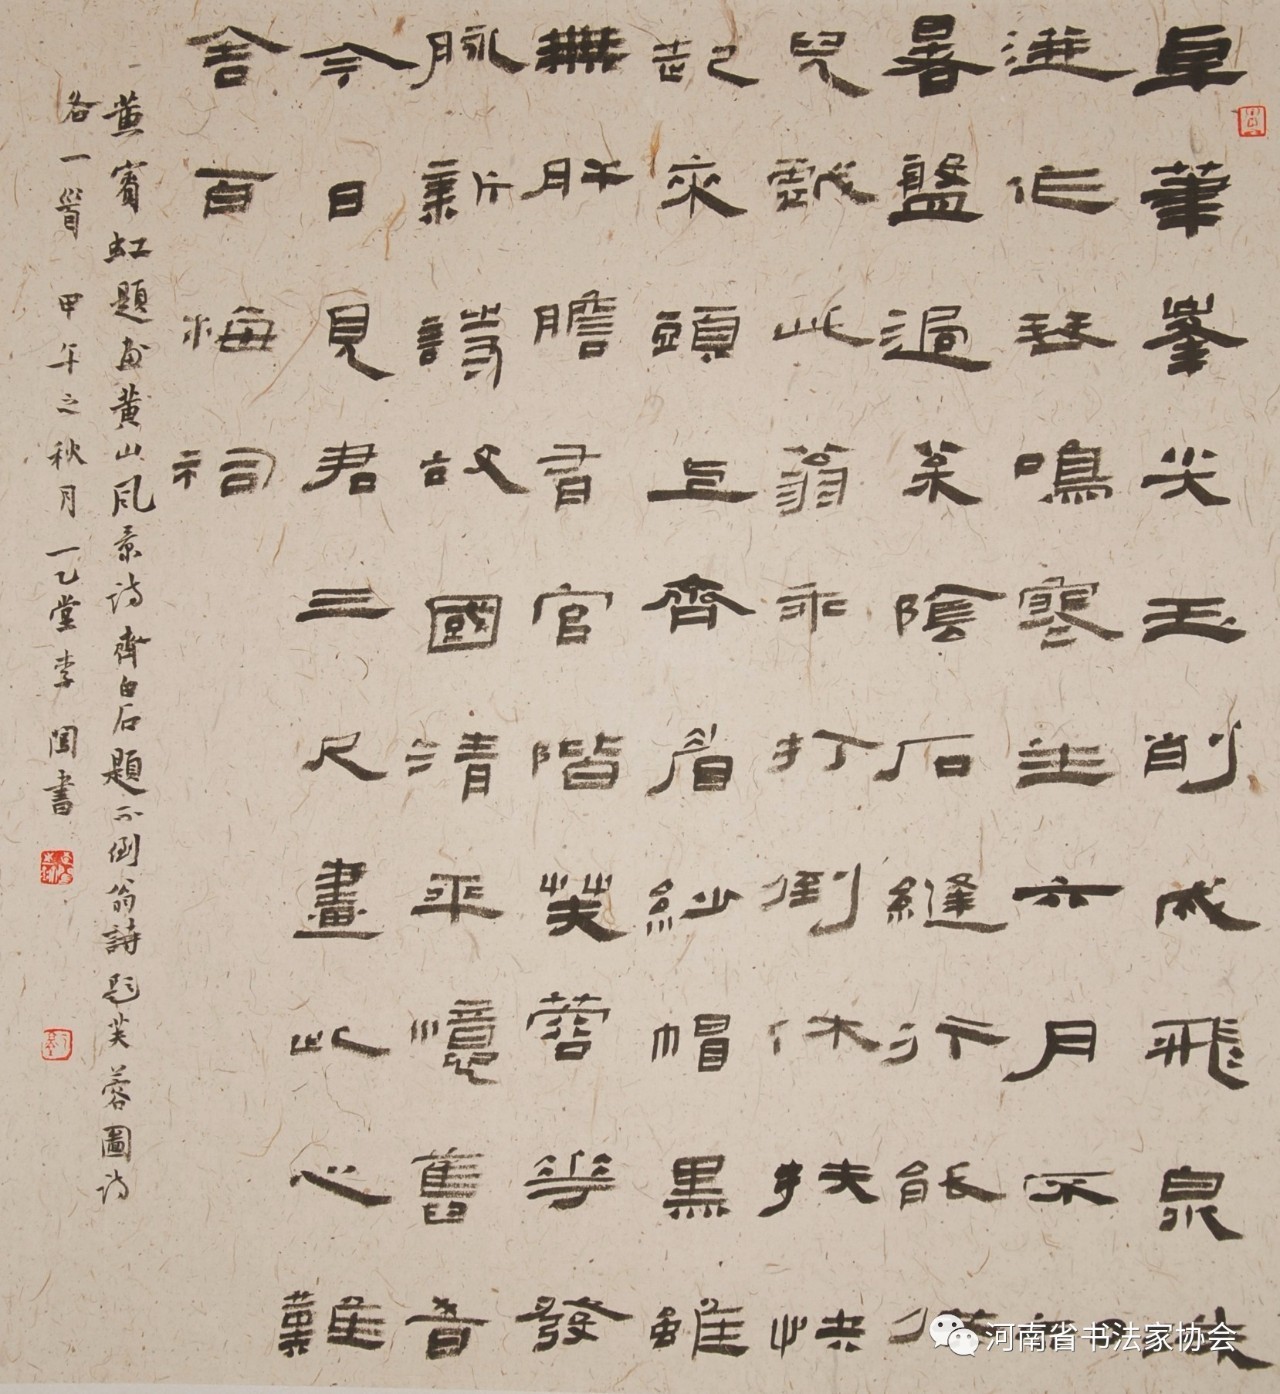 卓筆峯尖玉削成飛泉
迸作琴鳴寒生六月不
暑盤過菜陰石縫行能供
兒戲此翁乖打倒休扶快
起來頭上齊眉紗帽黑雖
無肝膽有官階芙蓉花發
咏新詩故國清平憶舊旹
今日見君三尺畫此心難
舍百梅祠
黄賓虹題画黄山风景诗齊白石題不倒翁詩题芙蓉圖诗
各一首 甲午之秋月一乙堂李書
河南省书法家协会